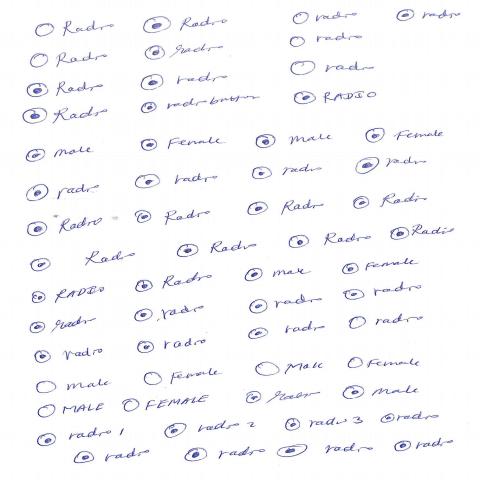 Radio Radio radio radio
Radio radio radio
Radio radio radio
Radio radiobutton RADIO
male Female male Female
radio radio radio radio
Radio Radio Radio Radio
Radio Radio Radio Radio
RADIO Radio male Female
radio radio radio radio
radio radio radio radio
male Female Male Female
MALE FEMALE radio male
radio 1 radio 2 radio 3 radio
radio radio radio radio